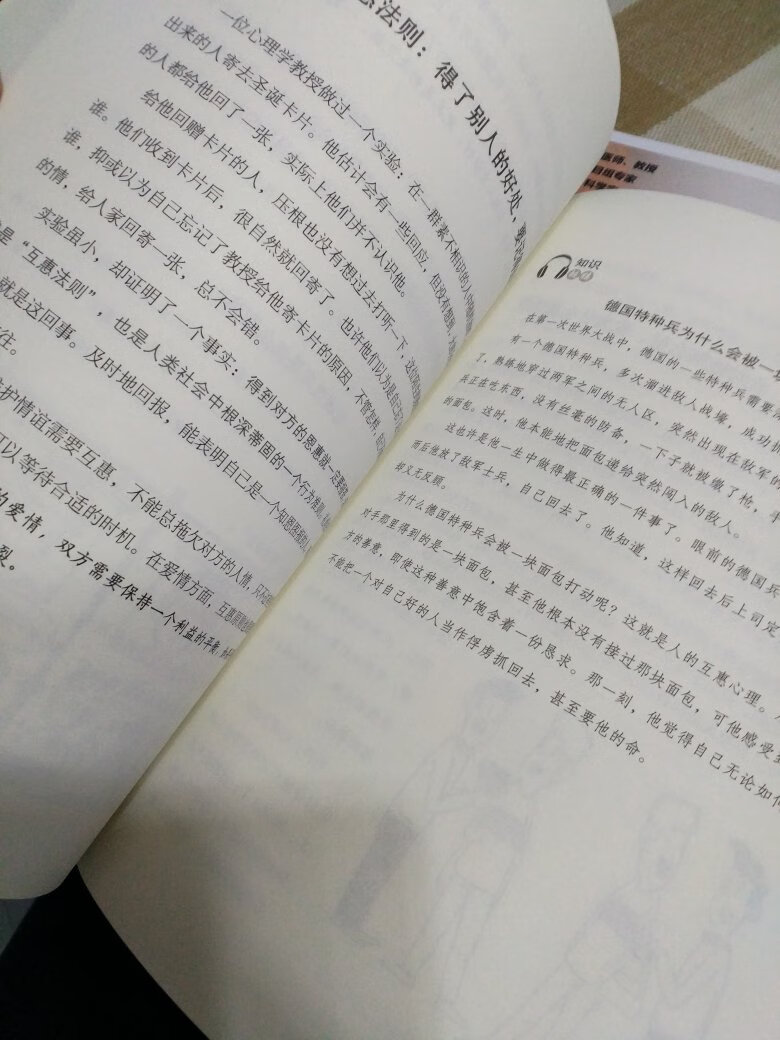 惠法则：得了别人的好处，要
一位心理学教授做过一个实验：在一群素不相识的人中
出来的人寄去圣诞卡片。他估计会有一些回应，但没有想到，
的人都给他回了一张，实际上他们并不认识他。
给他回赠卡片的人，压根也没有想过去打听一下，这
谁。他们收到卡片后，很自然就回寄了。也许他们以为是自己
谁，抑或以为自己忘记了教授给他寄卡片的原因，不管怎样，
的情，给人家回寄一张，总不会错。
实验虽小，却证明了一个事实：得到对方的恩惠就一定要
是“互惠法则”，也是人类社会中根深蒂固的一个行为准则。
就是这回事。及时地回报，能表明自己是一个知恩图报的
往。
护情谊需要互惠，不能总拖欠对方的人情，
可以等待合适的时机。在爱情方面，互惠
的爱情，双方需要保持一个利益的平衡，
裂。
医师、教授
目组专家
科学
知识
德国特种兵为什么会被一块
在第一次世界大战中，德国的一些特种兵需要
有一个德国特种兵，多次溜进敌人战壕，成功
了，熟练地穿过两军之间的无人区，突然出现在敌军的
兵正在吃东西，没有丝毫的防备，一下子就被缴了枪，手
的面包。这时，他本能地把面包递给突然闯入的敌人。
这也许是他一生中做得最正确的一件事了。眼前的德国兵
而后他放了敌军士兵，自己回去了。他知道，这样回去后上司定
却义无反顾。
为什么德国特种兵会被一块面包打动呢？这就是人的互惠心理。
对手那里得到的是一块面包，甚至他根本没有接过那块面包，可他感受到
方的善意，即使这种善意中饱含着一份恳求。那一刻，他觉得自己无论如何
不能把一个对自己好的人当作俘虏抓回去，甚至要他的命。